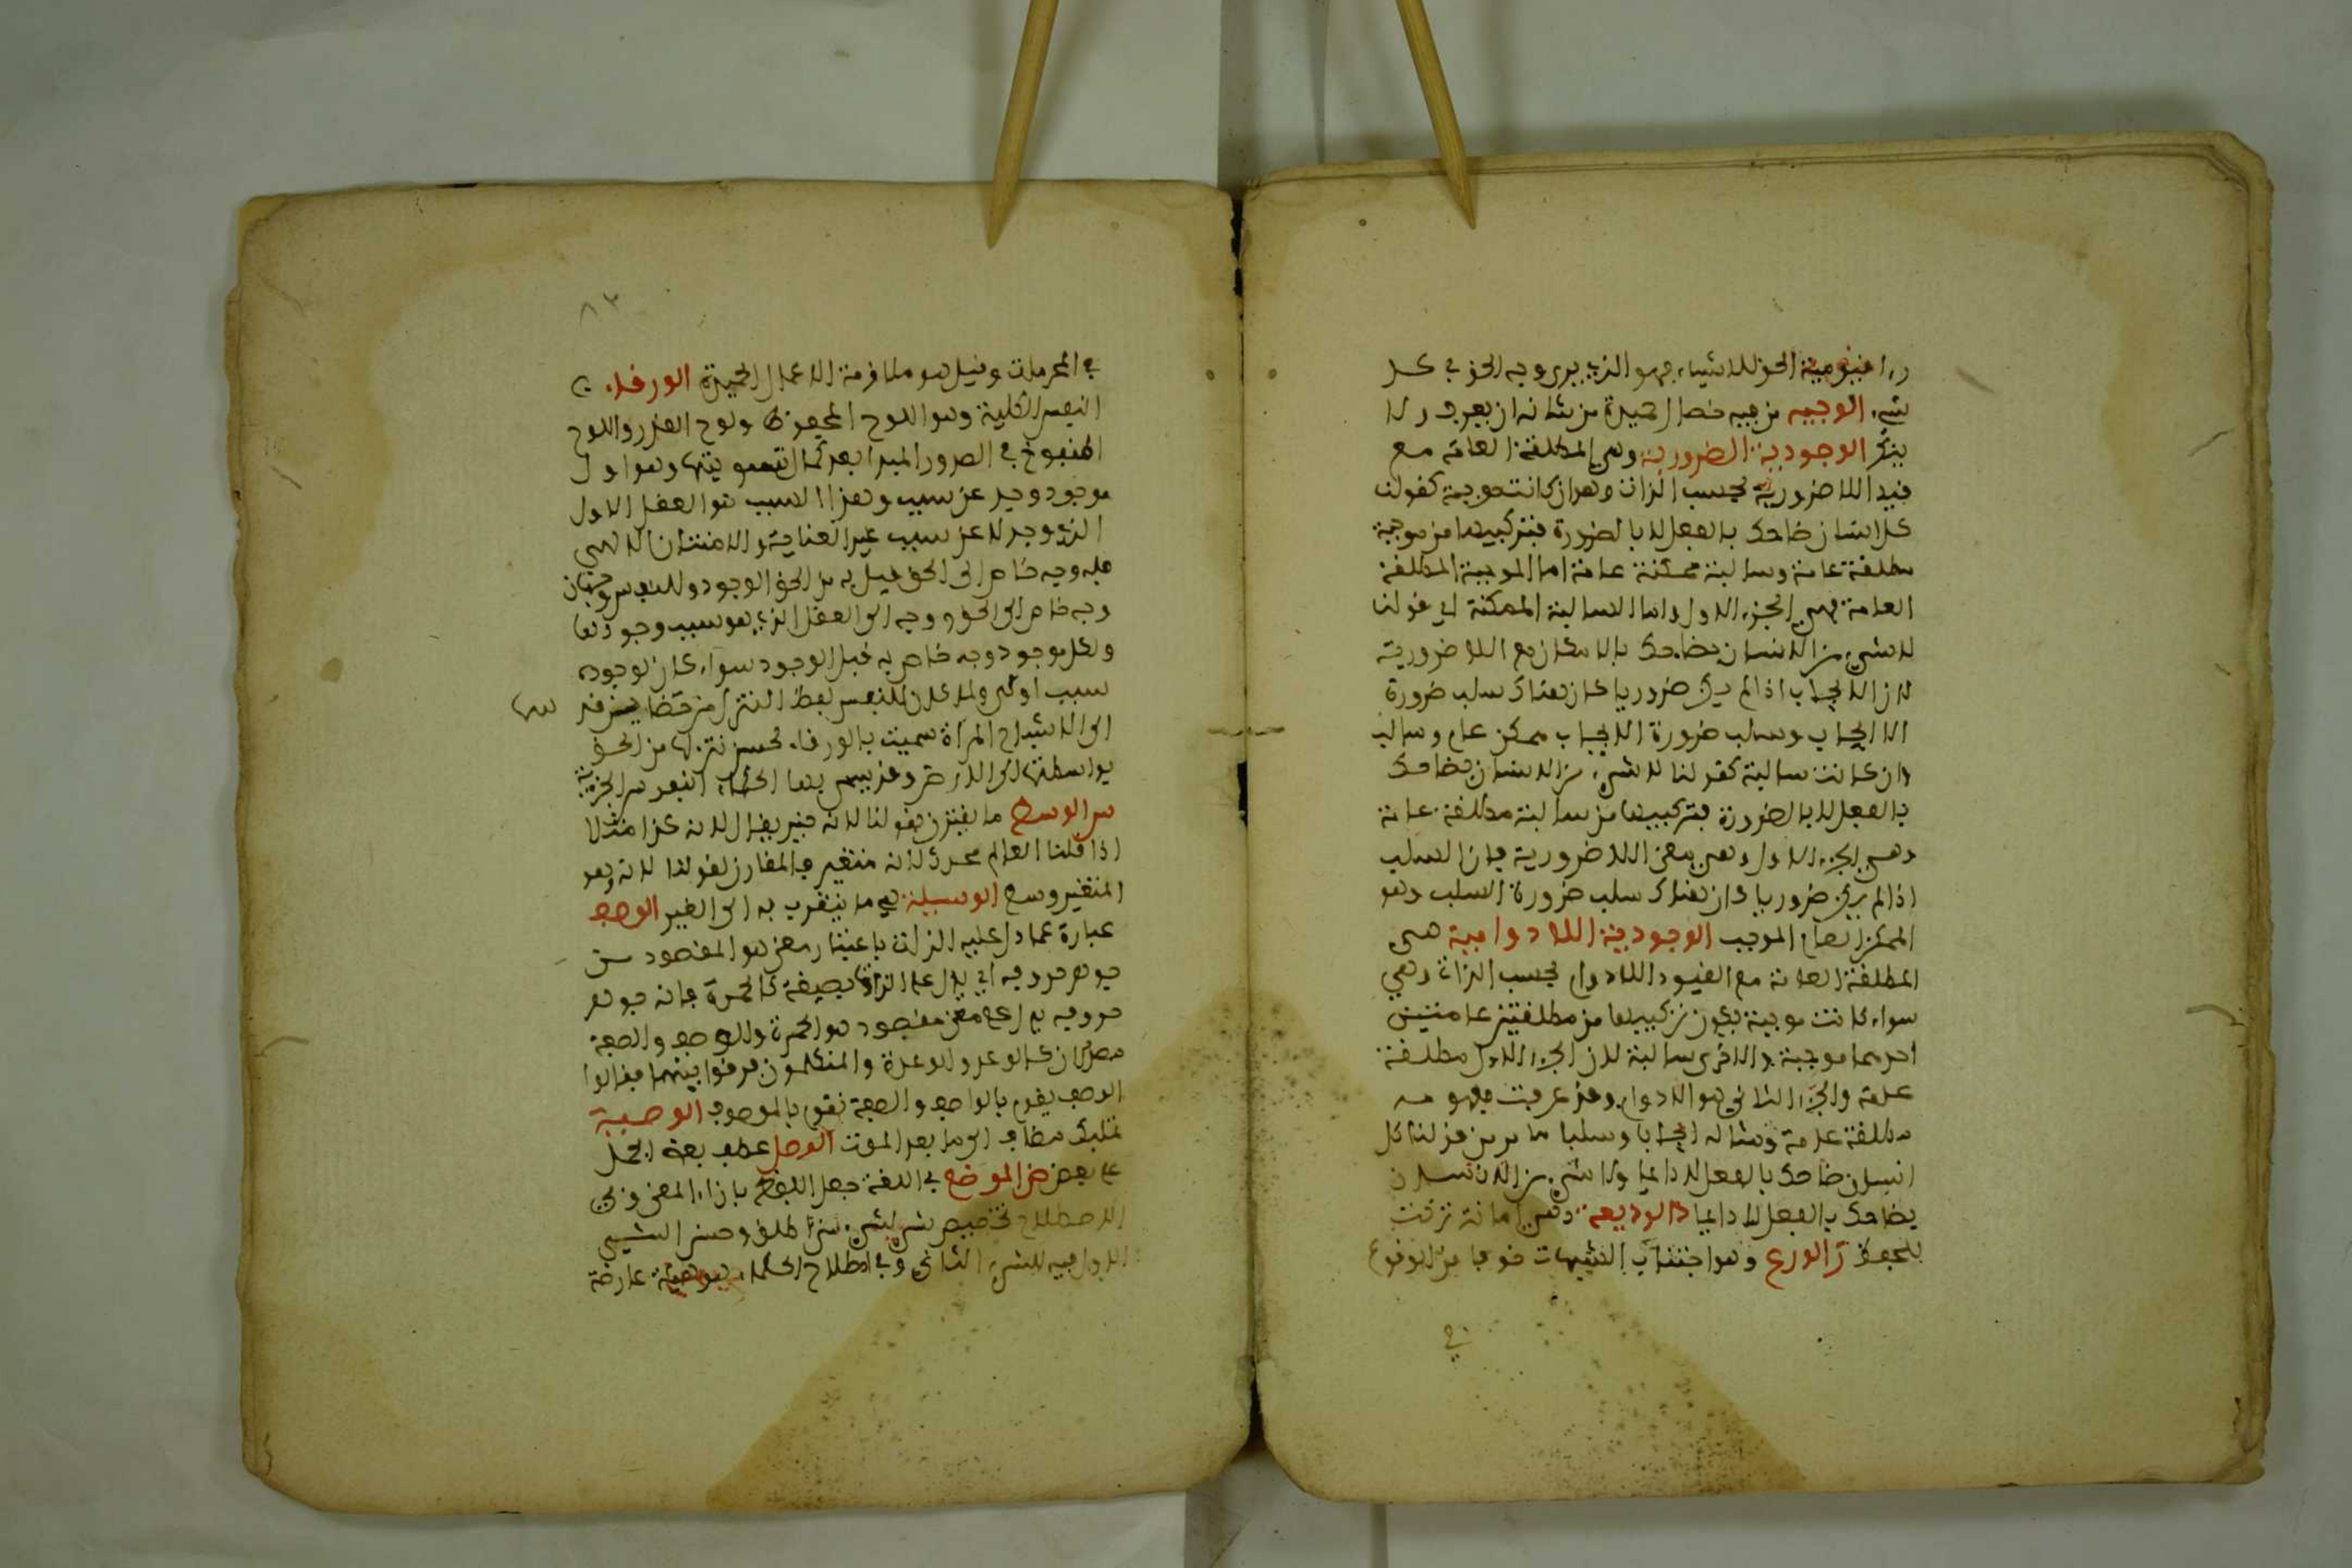 راى قيومية الحق للاشياء فهو الذي يرى وجه الحق في كل
شيء الوجيه من فيه خصال حميدة من شانه ان يعرف ولا
ينكر الوجودية الضرورية وهي المطلقة العامة مع
قيد اللا ضرورية بحسب الذات وهي ان كانت موجبة كقولنا
كل انسان ضاحك بالفعل لا بالضرورة فتركيبها من موجبة
مطلقة عامة وسالبة ممكنة عامة اما الموجبة المطلقة
العامة فهي الجزء الاول واما السالبة الممكنة اي قولنا
لا شيء من الانسان بضاحك بالامكان فهي اللا ضرورية
لان الايجاب اذا لم يكن ضروريا كان هناك سلب ضرورة
الايجاب وسلب ضرورة الايجاب ممكن عام وسالب
وان كانت سالبة كقولنا لا شيء من الانسان بضاحك
بالفعل لا بالضرورة فتركيبها من سالبة مطلقة عامة
وهي الجزء الاول وهي معنى اللا ضرورية فان السلب
اذا لم يكن ضروريا كان هناك سلب ضرورة السلب وهو
الممكن العام الموجب الوجودية اللا دوامية هي
المطلقة العامة مع القيود اللا دوام بحسب الذات وهي
سواء كانت موجبة يكون تركيبها من مطلقتين عامتين
احدهما موجبة والاخرى سالبة لان الجزء الاول مطلقة
عامة والجزء الثاني هو اللا دوام وقد عرفت مفهومه
مطلقة عامة ومثاله ايجابا وسلبا ما مر من قولنا كل
انسان ضاحك بالفعل لا دائما ولا شيء من الانسان
بضاحك بالفعل لا دائما الوديعة وهي امانة تركت
للحفظ الورع وهو اجتناب الشبهات خوفا من الوقوع
في
٨٣
في المحرمات وقيل هو ملازمة الاعمال الحميدة الورقاء
النفس الكلية وهو اللوح المحفوظ ولوح القدر والروح
المنفوخ في الصور المبدا بعد كمال تسويتها وهو اول
موجود وجد عن سبب وهذا السبب هو العقل الاول
الذي وجد لا عن سبب غير العناية والامتنان الالهي
فله وجه خاص الى الحق قبل به من الحق الوجود وللنفس وجهان
وجه خاص الى الحق ووجه الى العقل الذي هو سبب وجودها
ولكل موجود وجه خاص به قبل الوجود سواء كان لوجوده
سبب او لا ولما كان للنفس لطف التنزل من حضائر قدسها
الى الاشباح المراة سميت بالورقاء لحسن تنزلها من الحق
بواسطتها الى الارض وقد يسمي بعض الحكماء النفوس الجزئية
الوسط ما يقترن بقولنا لانه حين يقال لانه كذا مثلا
اذا قلنا العالم محدث لانه متغير فالمقارن لقولنا لانه وهو
المتغير وسط الوسيلة هي ما يتقرب به الى الغير الوصف
عبارة عما دل عليه الذات باعتبار معنى هو المقصود من
جوهر حروفه اي يدل على الذات بصيغة كالحمرة فانه جوهر
حروفه يدل على معنى مقصود هو الحمرة والوصف والصفة
مصدران كالوعد والوعدة والمتكلمون فرقوا بينهما فقالوا
الوصف يقوم بالواصف والصفة تقوم بالموصوف الوصية
تمليك مضاف الى ما بعد الموت الوصل عطف بعض الجمل
على بعض الوضع في اللغة جعل اللفظ بازاء المعنى وفي
الاصطلاح تخصيص شيء بشيء متى اطلق وحس الشيء
الاول فهم الشيء الثاني وفي اصطلاح الحكماء هو هيئة عارضة